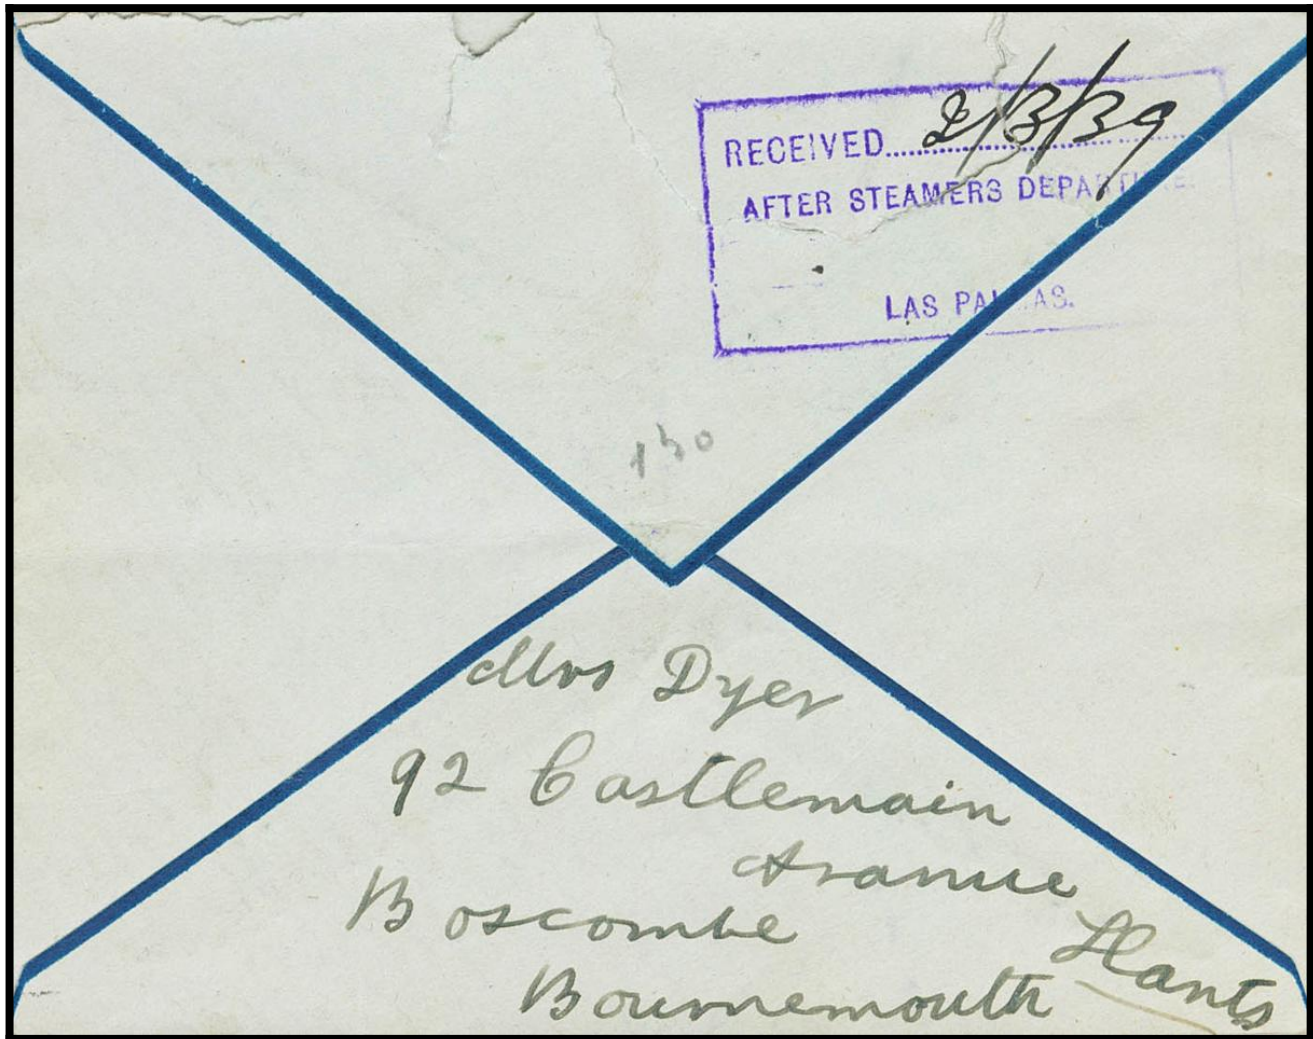 RECEIVED 2/3/39
AFTER STEAMERS DEPARTURE.
LAS PALMAS.
130
Mrs Dyer
92 Castlemain
Avanue
Boscombe
Hants
Bournemouth